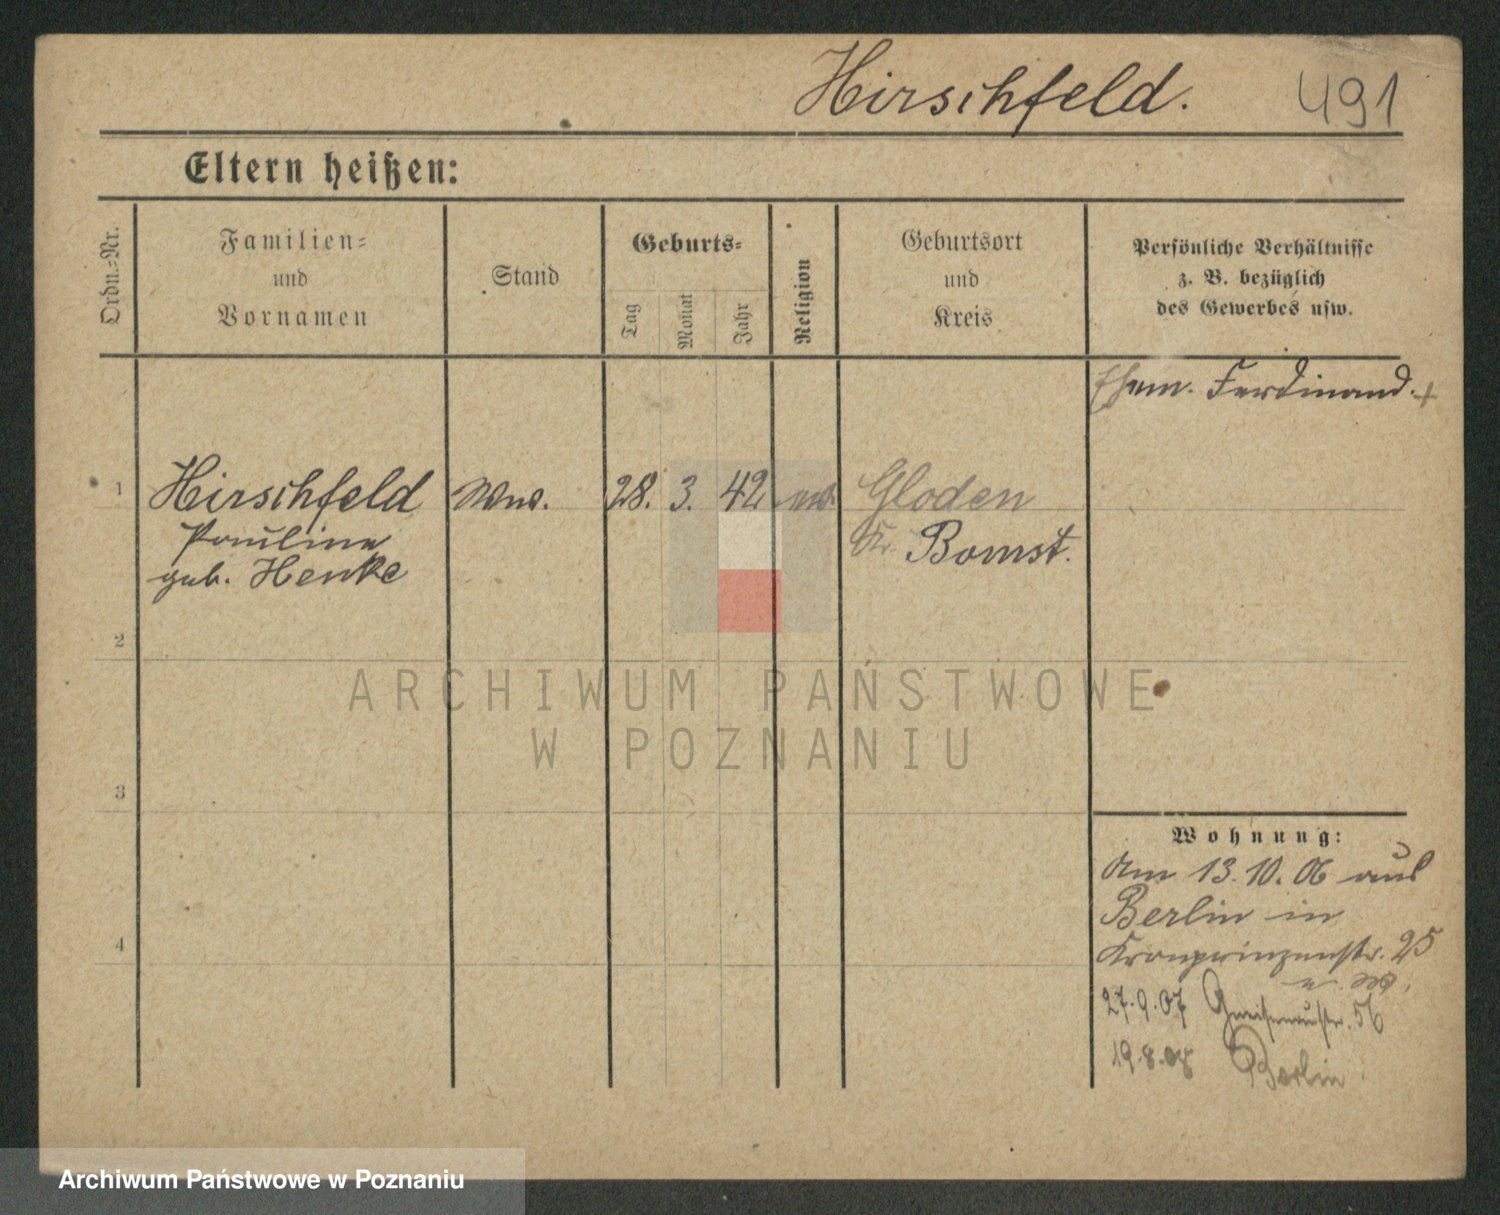 Hirschfeld. 491
Eltern heißen:
Ordn.=Nr.
Familien=
und
Vornamen
Stand
Geburts=
Tag
Monat
Jahr
Religion
Geburtsort
und
Kreis
Persönliche Verhältnisse
z. B. bezüglich
des Gewerbes usw.
Ehem. Ferdinand. +
1 Hirschfeld Wwe. 28. 3. 42 Gloden
Pauline Kr. Bomst.
geb. Henke
2
ARCHIWUM PAŃSTWOWE
W POZNANIU
3
Wohnung:
Am 13.10.06 aus
Berlin in
4
Kronprinzenstr. 25
27.9.07 Gneisenaustr. 56
19.8.08 Berlin
Archiwum Państwowe w Poznaniu